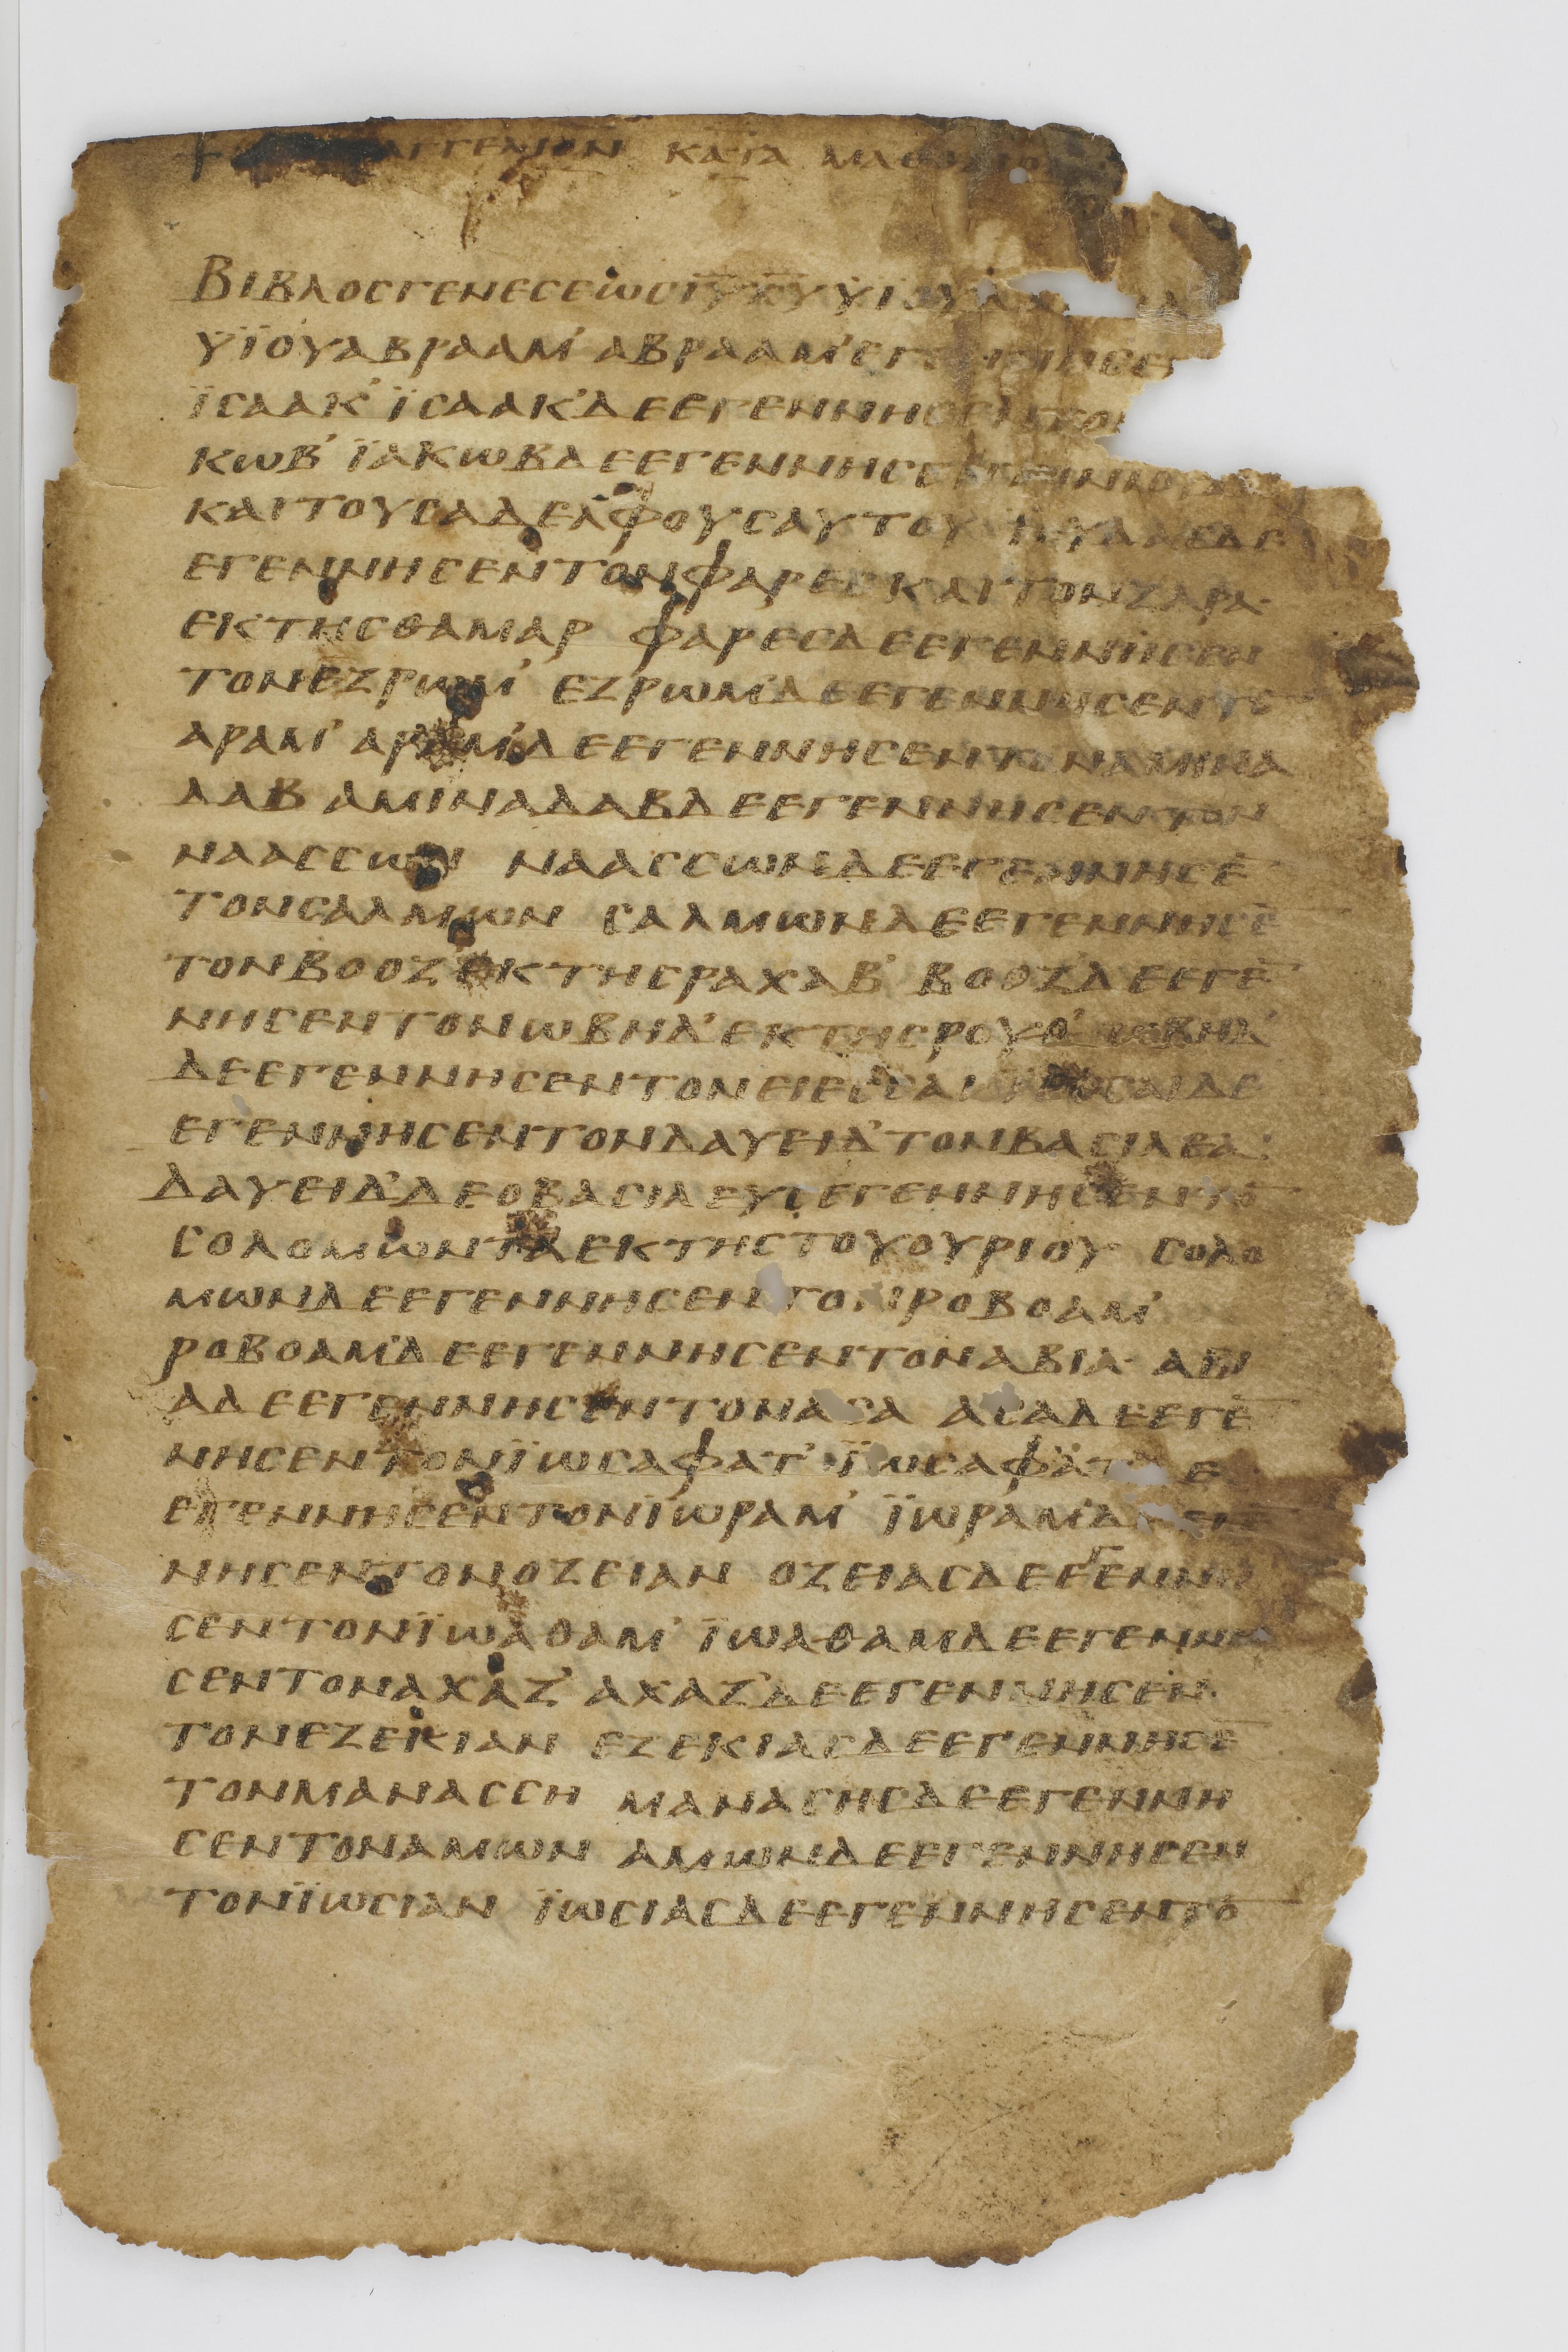 ΑΓΓΕΛΙΟΝ ΚΑΤΑ
ΒΙΒΛΟΣΓΕΝΕΣΕΩΣΙΥ ΧΥ ΥΙΟΥ
ΥΪΟΥΑΒΡΑΑΜ’ ΑΒΡΑΑΜ’ΕΓΕΝΝΗΣΕ
ΪΣΑΑΚ’ ΪΣΑΑΚ’ΔΕΕΓΕΝΝΗΣΕΝ
ΚΩΒ’ ΪΑΚΩΒΔΕΕΓΕΝΝΗΣΕΝ
ΚΑΙΤΟΥΣΑΔΕΛΦΟΥΣΑΥΤΟΥ ΙΟΥΔΑΣΔΕ
ΕΓΕΝΝΗΣΕΝΤΟΝΦΑΡΕΣΚΑΙΤΟΝΖΑΡΑ·
ΕΚΤΗΣΘΑΜΑΡ ΦΑΡΕΣΔΕΕΓΕΝΝΗΣΕΝ
ΤΟΝΕΖΡΩΜ’ ΕΖΡΩΜ’ΔΕΕΓΕΝΝΗΣΕΝΤΟ̅
ΑΡΑΜ’ ΑΡΑΜ’ΔΕΕΓΕΝΝΗΣΕΝΤΟΝΑΜΙΝΑ
ΔΑΒ ΑΜΙΝΑΔΑΒΔΕΕΓΕΝΝΗΣΕΝΤΟΝ
ΝΑΑΣΣΩΝ ΝΑΑΣΣΩΝΔΕΕΓΕΝΝΗΣΕ̅
ΤΟΝΣΑΛΜΩΝ ΣΑΛΜΩΝΔΕΕΓΕΝΝΗΣΕ̅
ΤΟΝΒΟΟΖ’ΕΚΤΗΣΡΑΧΑΒ’ ΒΟΟΖ’ΔΕΕΓΕ̅
ΝΗΣΕΝΤΟΝΩΒΗΔ’ΕΚΤΗΣΡΟΥΘ’ ΩΒΗΔ’
ΔΕΕΓΕΝΝΗΣΕΝΤΟΝΕΙΕΣΣΑΙ ΔΕ
ΕΓΕΝΝΗΣΕΝΤΟΝΔΑΥΕΙΔ’ΤΟΝΒΑΣΙΛΕΑ·
ΔΑΥΕΙΔ’ΔΕΟΒΑΣΙΛΕΥΣΕΓΕΝΝΗΣΕΝΤΟ̅
ΣΟΛΟΜΩΝΤΑ ΕΚΤΗΣΤΟΥΟΥΡΙΟΥ ΣΟΛΟ
ΜΩΝΔΕΕΓΕΝΝΗΣΕΝΤΟΝΡΟΒΟΑΜ’
ΡΟΒΟΑΜ’ΔΕΕΓΕΝΝΗΣΕΝΤΟΝΑΒΙΑ· ΑΒΙ
ΑΔΕΕΓΕΝΝΗΣΕΝΤΟΝΑΣΑ ΑΣΑΔΕΕΓΕ̅
ΝΗΣΕΝΤΟΝΪΩΣΑΦΑΤ’ ΪΩΣΑΦΑΤ’ΔΕ
ΕΓΕΝΝΗΣΕΝΤΟΝΪΩΡΑΜ’ ΪΩΡΑΜ’ΔΕ
ΝΗΣΕΝΤΟΝΟΖΕΙΑΝ ΟΖΕΙΑΣΔΕΕΓΕΝΝΗ
ΣΕΝΤΟΝΪΩΑΘΑΜ’ ΪΩΑΘΑΜΔΕΕΓΕΝΝΗ
ΣΕΝΤΟΝΑΧΑΖ’ ΑΧΑΖ’ΔΕΕΓΕΝΝΗΣΕΝ·
ΤΟΝΕΖΕΚΙΑΝ ΕΖΕΚΙΑΣΔΕΕΓΕΝΝΗΣΕ̅
ΤΟΝΜΑΝΑΣΣΗ ΜΑΝΑΣΗΣΔΕΕΓΕΝΝΗ
ΣΕΝΤΟΝΑΜΩΝ ΑΜΩΝΔΕΕΓΕΝΝΗΣΕΝ
ΤΟΝΪΩΣΙΑΝ ΪΩΣΙΑΣΔΕΕΓΕΝΝΗΣΕΝΤΟ̅